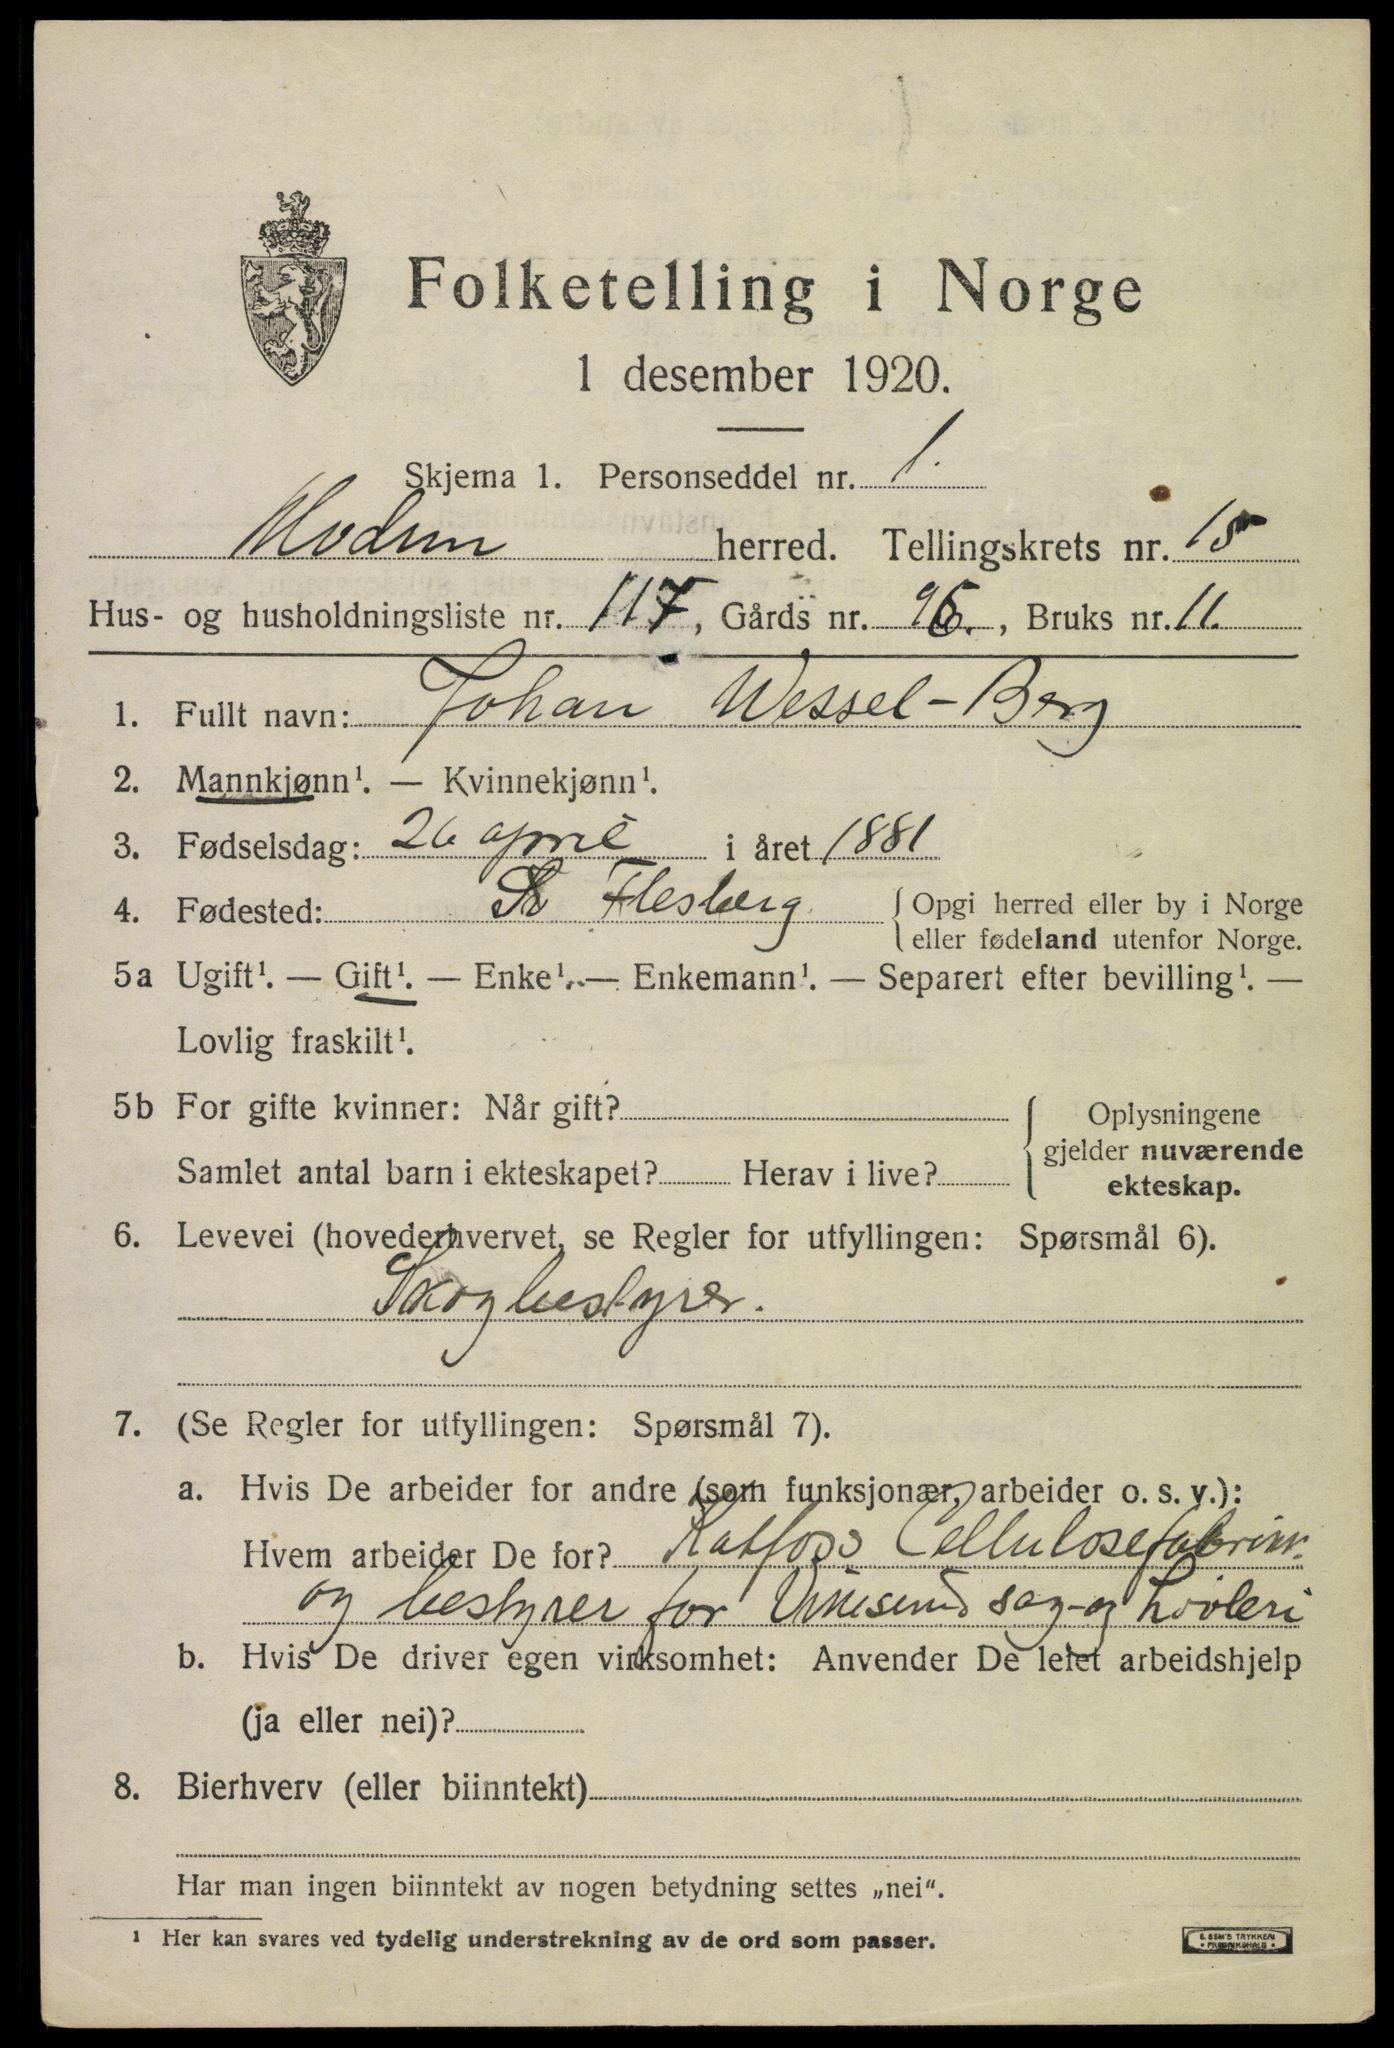 Folketelling i Norge
1 desember 1920.
Skjema 1. Personseddel nr. 1.
Modum herred. Tellingskrets nr. 15
Hus- og husholdningsliste nr. 117, Gårds nr. 96., Bruks nr. 11.
1. Fullt navn: Johan Wessel-Berg
2. Mannkjønn¹. — Kvinnekjønn¹.
3. Fødselsdag: 26 april i året 1881
4. Fødested: Flesberg { Opgi herred eller by i Norge
eller fødeland utenfor Norge.
5a Ugift¹. — Gift¹. — Enke¹. — Enkemann¹. — Separert efter bevilling¹. —
Lovlig fraskilt¹.
5b For gifte kvinner: Når gift?
Samlet antal barn i ekteskapet? Herav i live?
Oplysningene
gjelder nuværende
ekteskap.
6. Levevei (hovederhvervet, se Regler for utfyllingen: Spørsmål 6).
Skogbestyrer.
7. (Se Regler for utfyllingen: Spørsmål 7).
a. Hvis De arbeider for andre (som funksjonær, arbeider o. s. v.):
Hvem arbeider De for? Katfoss Cellulosefabrikk
og bestyrer for sag- og høvleri
b. Hvis De driver egen virksomhet: Anvender De leiet arbeidshjelp
(ja eller nei)?
8. Bierhverv (eller biinntekt)
Har man ingen biinntekt av nogen betydning settes „nei".
¹ Her kan svares ved tydelig understrekning av de ord som passer.
E. SEM'S TRYKKERI
• FREDRIKSHALD •